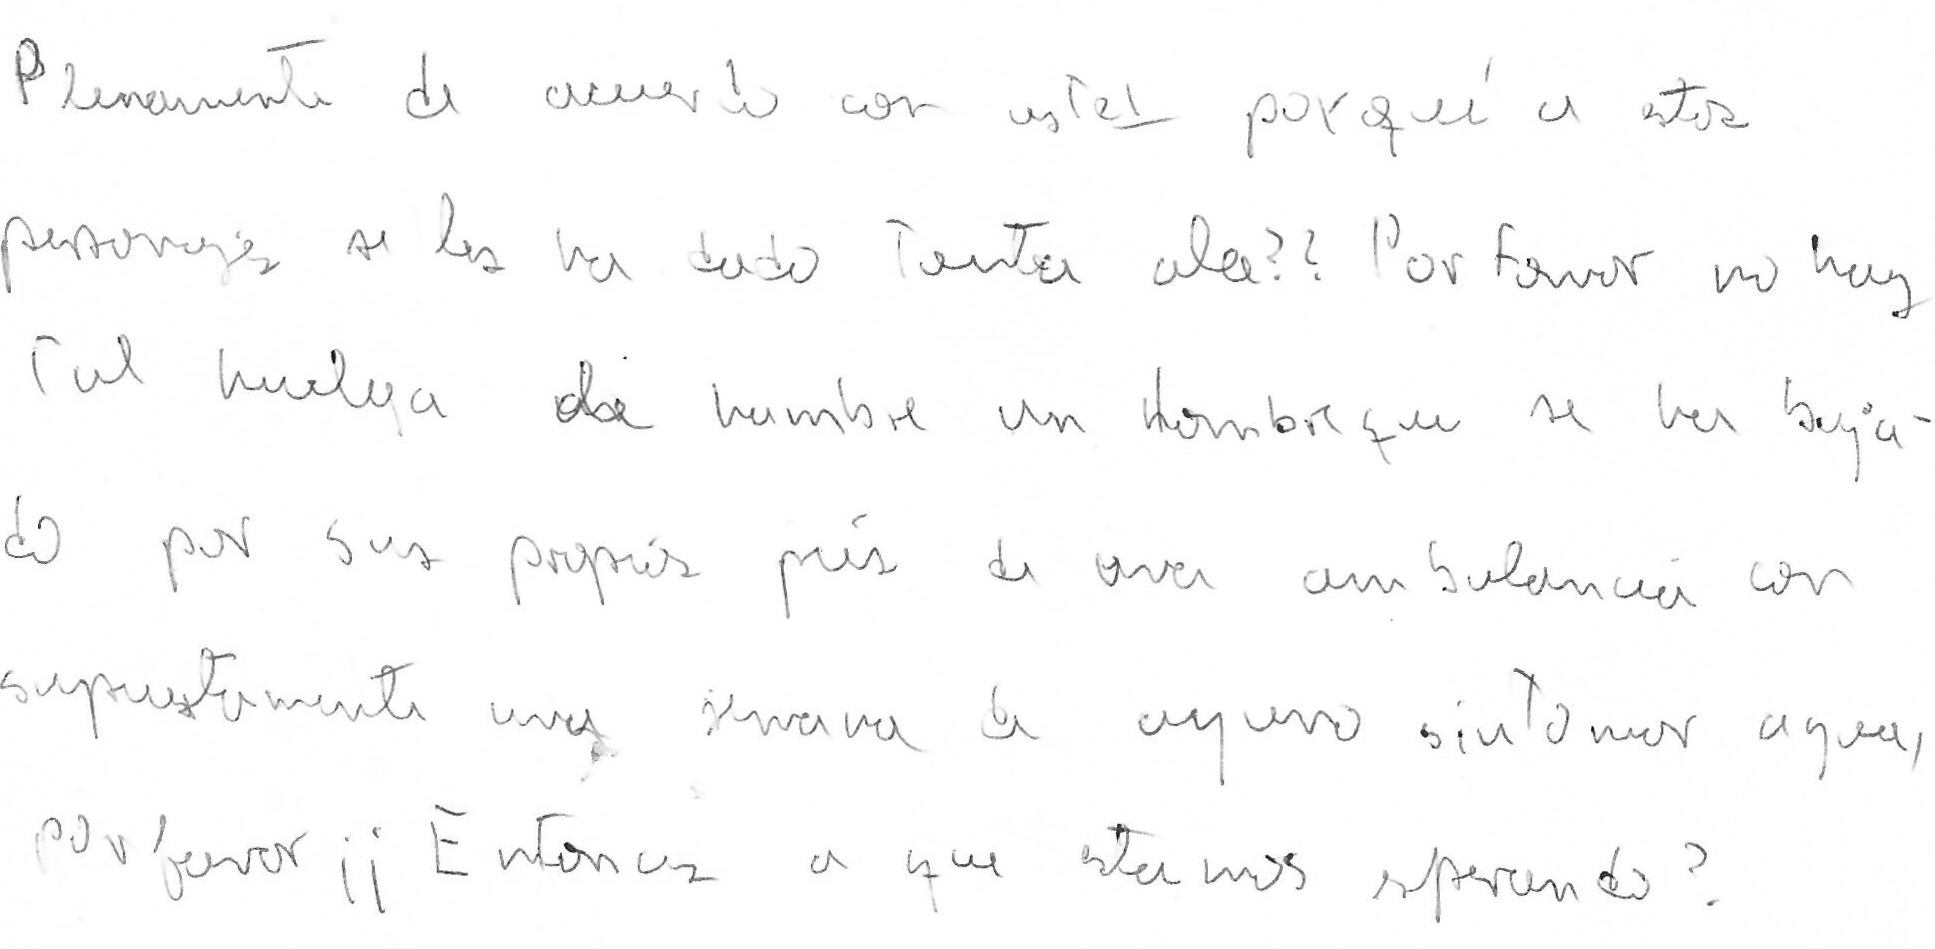 Plenamente de acuerdo con usted porqué a estos
personajes se les ha dado tanta ala?? Por favor no hay
tal huelga de hambre un hombre que se ha baja-
do por sus propiós piés de una ambulancia con
supuestamente una semana de ayuno sin tomar agua,
por favor ¡¡ Entonces a que estamos esperando?